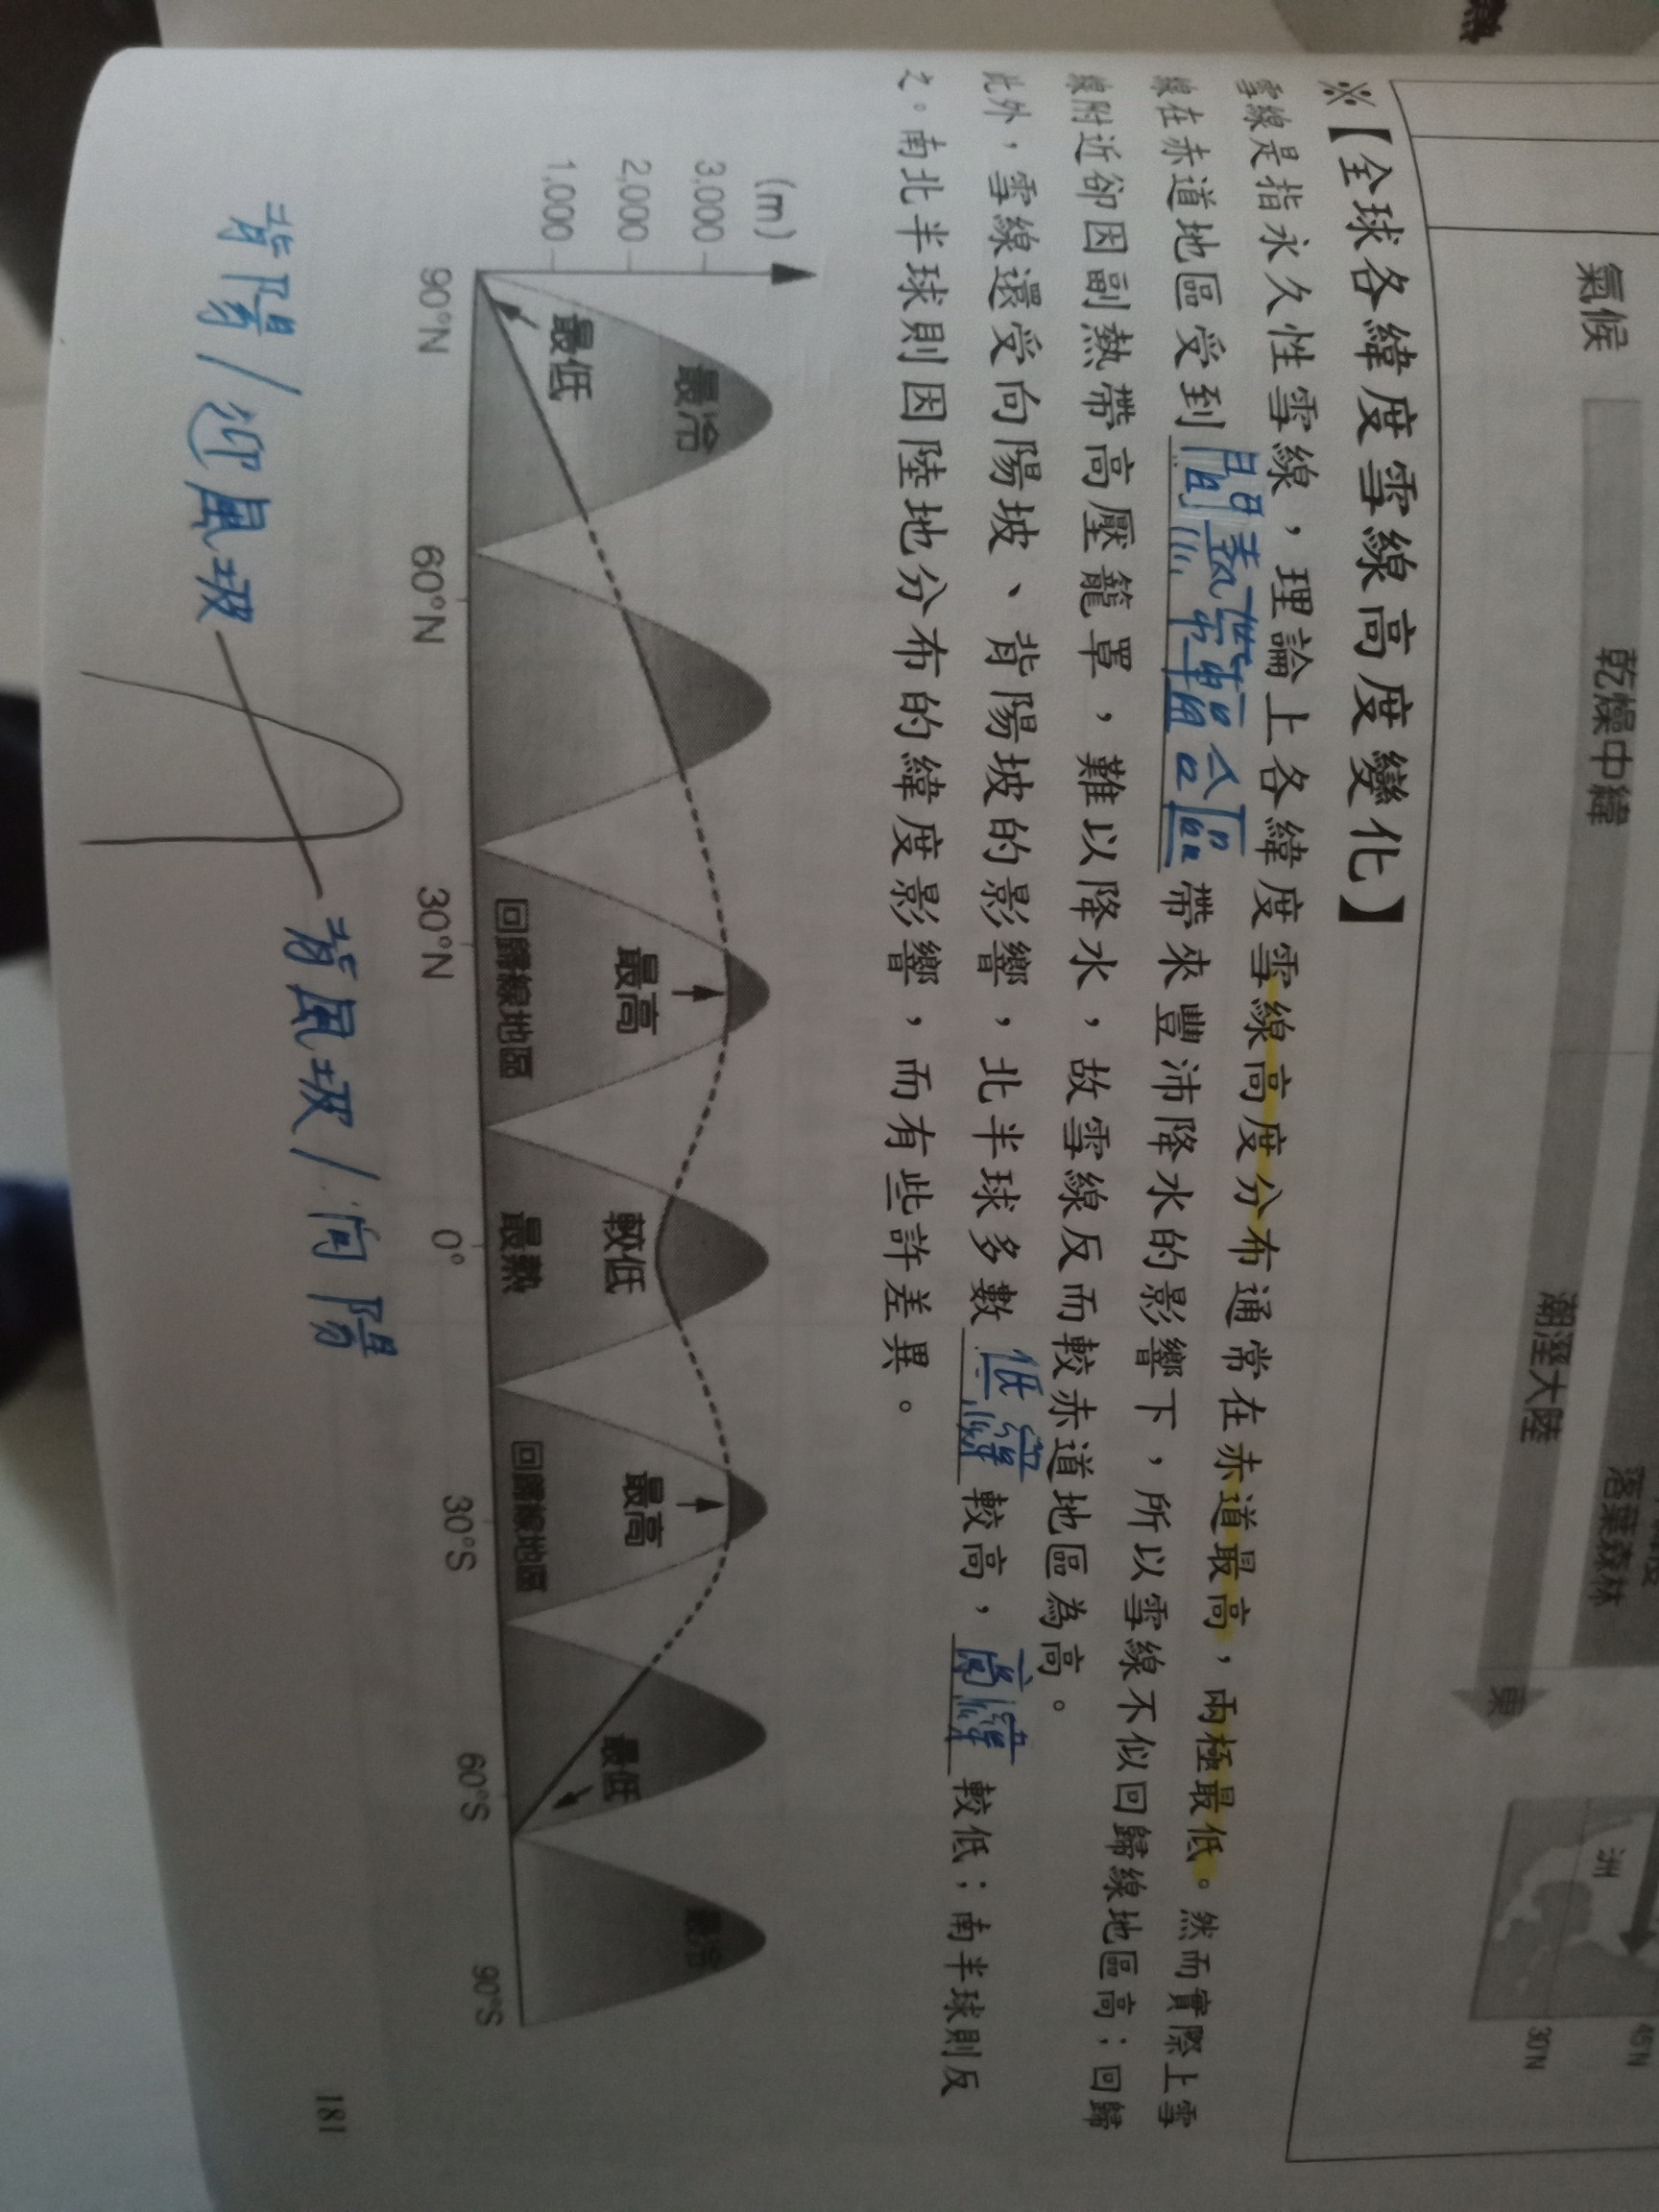 氣候
乾燥中緯
潮溼大陸
落葉森林
東
洲
45°N
30°N
※【全球各緯度雪線高度變化】
雪線是指永久性雪線，理論上各緯度雪線高度分布通常在赤道最高，兩極最低。然而實際上雪
線在赤道地區受到間熱帶輻合區帶來豐沛降水的影響下，所以雪線不似回歸線地區高；回歸
線附近卻因副熱帶高壓籠罩，難以降水，故雪線反而較赤道地區為高。
此外，雪線還受向陽坡、背陽坡的影響，北半球多數低緯較高，高緯較低；南半球則反
之。南北半球則因陸地分布的緯度影響，而有些許差異。
(m)
3,000
2,000
1,000
最冷
最低
最高
回歸線地區
較低
最熱
最高
回歸線地區
最低
最冷
90°N
60°N
30°N
0°
30°S
60°S
90°S
背陽/迎風坡
背風坡/向陽
181